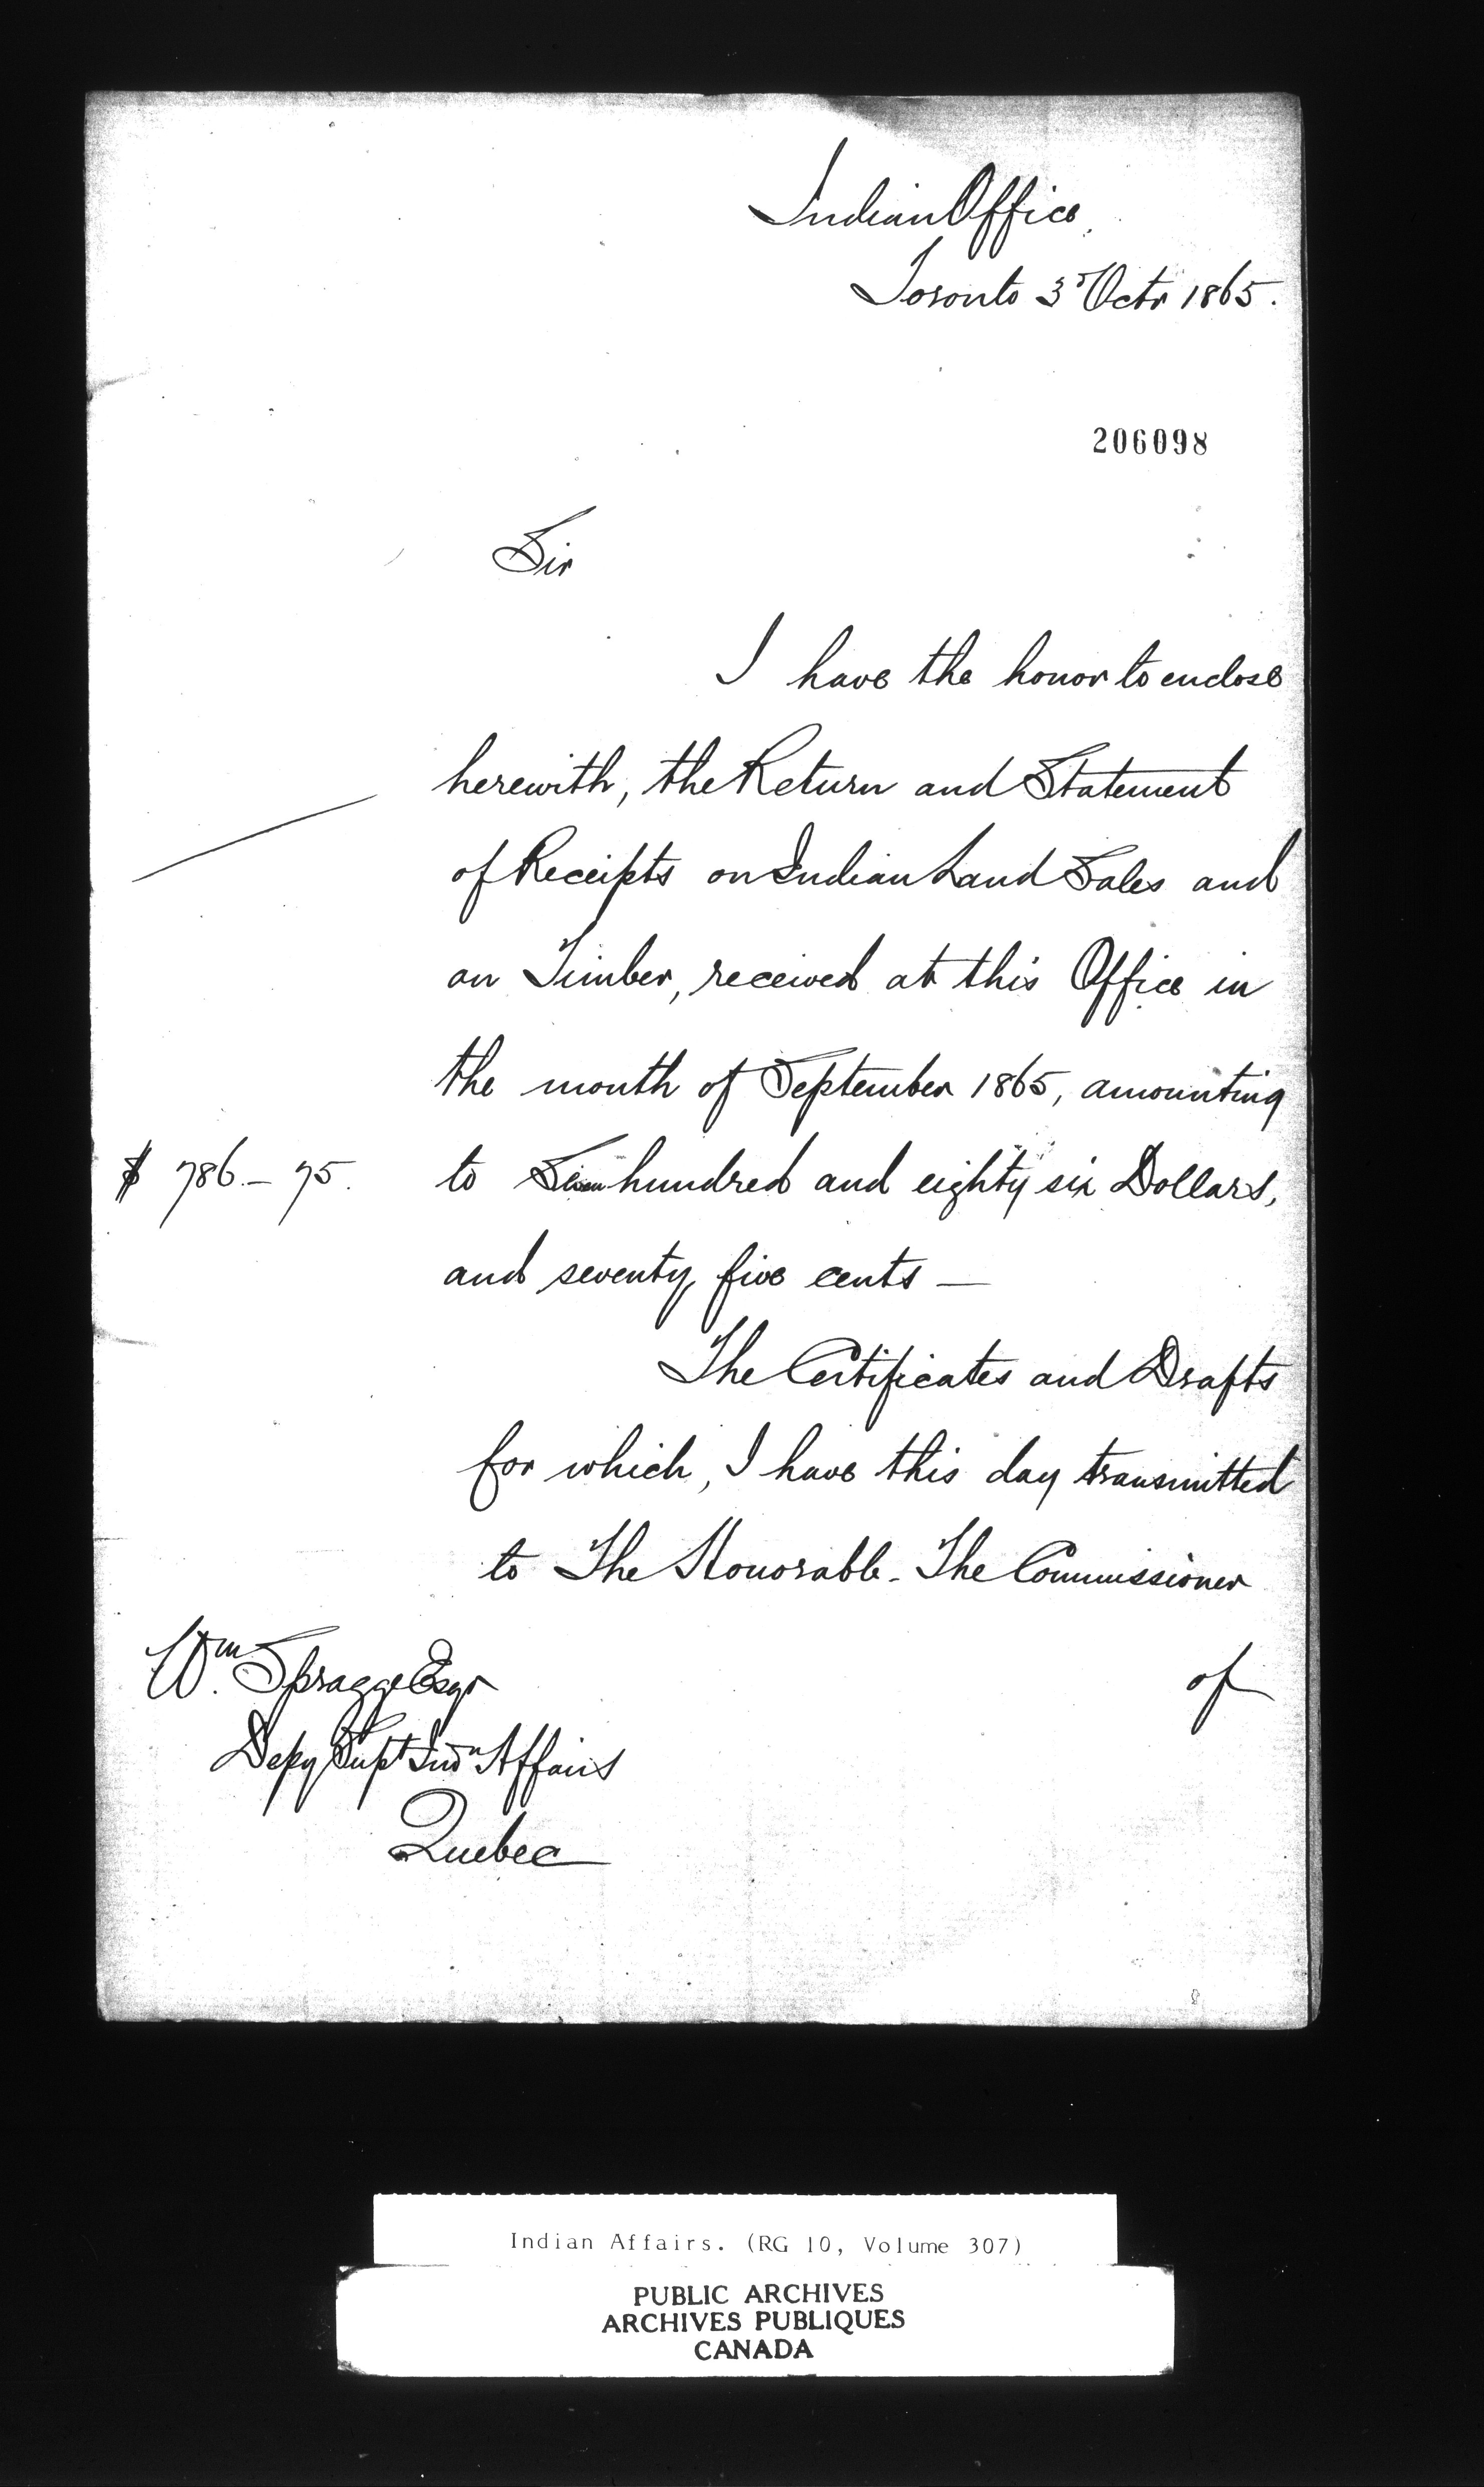 Indian Office,
Toronto 3d Octr 1865.
206098
Sir
I have the honor to enclose
herewith, the Return and Statement
of Receipts on Indian Land Sales and
on Timber, received at this Office in
the month of September 1865, amounting
$ 786 - 75. to Seven hundred and eighty six Dollars,
and seventy five cents —
The Certificates and Drafts
for which, I have this day transmitted
to The Honorable - The Commissioner
of
Wm. Spragge Esqr
Depy Supt Indn Affairs
Quebec
Indian Affairs. (RG 10, Volume 307)
PUBLIC ARCHIVES
ARCHIVES PUBLIQUES
CANADA